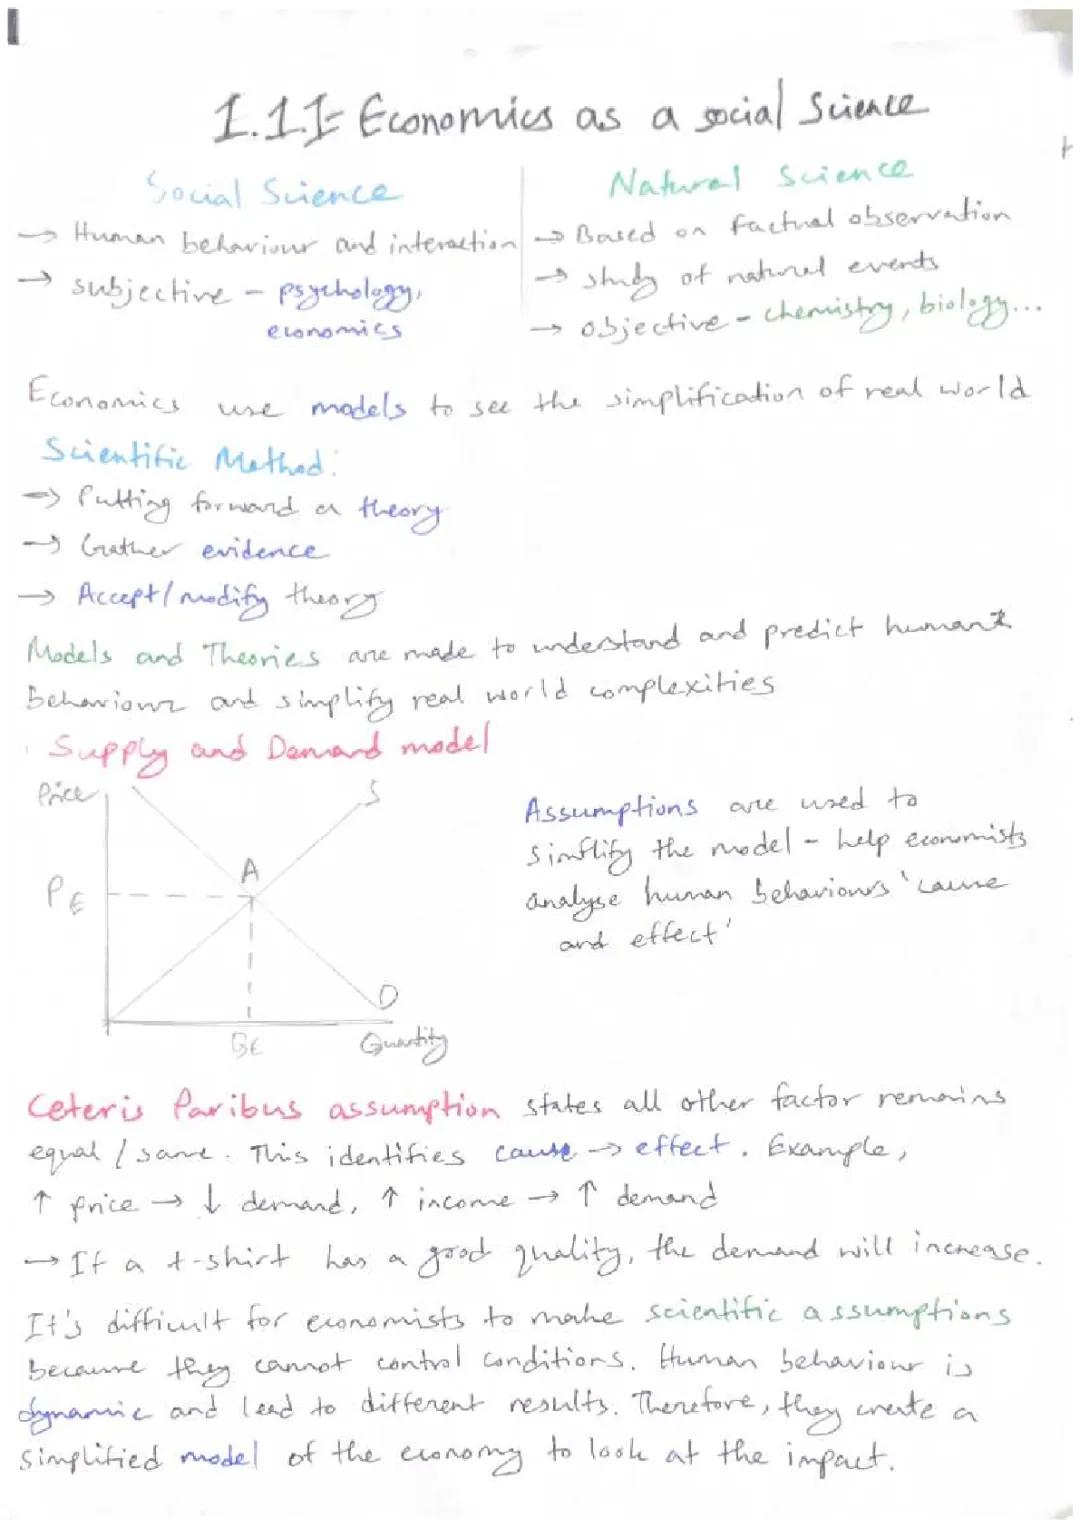 1.1.1- Economics as a social Science
Social Science
→ Human behaviour and interaction
→ subjective - psychology,
economics
Natural Science
→ Based on factual observation
→ study of natural events
→ objective - chemistry, biology...
Economics use models to see the simplification of real world
Scientific Method:
→ Putting forward a theory
→ Gather evidence
→ Accept/modify theory
Models and Theories are made to understand and predict human
behaviour and simplify real world complexities
Supply and Demand model
Price
S
A
PE
D
QE
Quantity
Assumptions are used to
simflify the model - help economists
analyse human behaviours 'cause
and effect'
Ceteris Paribus assumption states all other factor remains
equal / same. This identifies cause → effect. Example,
↑ price → ↓ demand, ↑ income → ↑ demand
→ If a t-shirt has a good quality, the demand will increase.
It's difficult for economists to make scientific assumptions
because they cannot control conditions. Human behaviour is
dynamic and lead to different results. Therefore, they create a
simplified model of the economy to look at the impact.